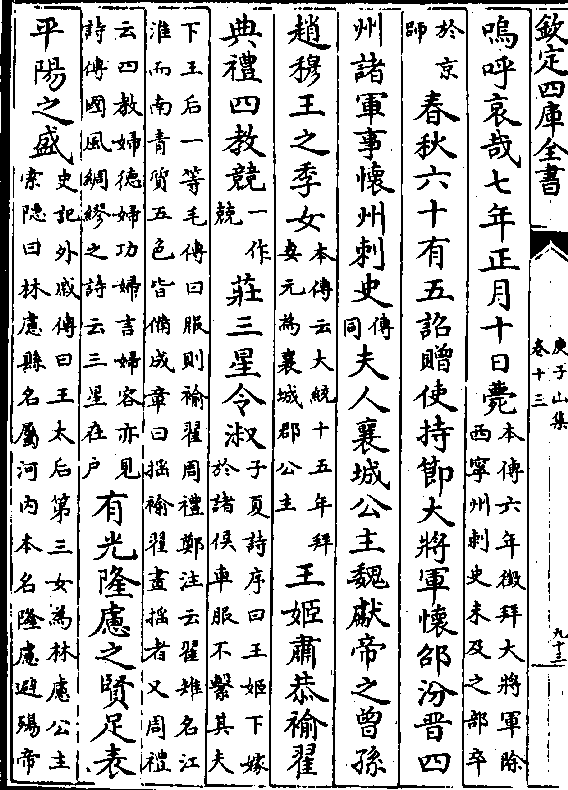 欽定四庫全書
庾子山集
卷十三
九十三
嗚呼哀哉七年正月十日薨本傳六年徵拜大將軍除西寧州刺史未及之部卒
於京師春秋六十有五詔贈使持節大將軍懷邵汾晉四
州諸軍事懷州刺史傳同夫人襄城公主魏獻帝之曾孫
趙穆王之季女本傳云大統十五年拜妻元為襄城郡公主王姬肅恭褕翟
典禮四教競一作兢莊三星令淑子夏詩序曰王姬下嫁於諸侯車服不繫其夫
下王后一等毛傳曰服則褕翟周禮鄭注云翟雉名江淮而南青質五色皆備成章曰揺褕翟畫揺者又周禮
云四教婦德婦功婦言婦容亦見詩傳國風綢繆之詩云三星在户有光隆慮之賢足表
平陽之盛史記外戚傳曰王太后第三女為林慮公主索隠曰林慮縣名屬河内本名隆慮避殤帝